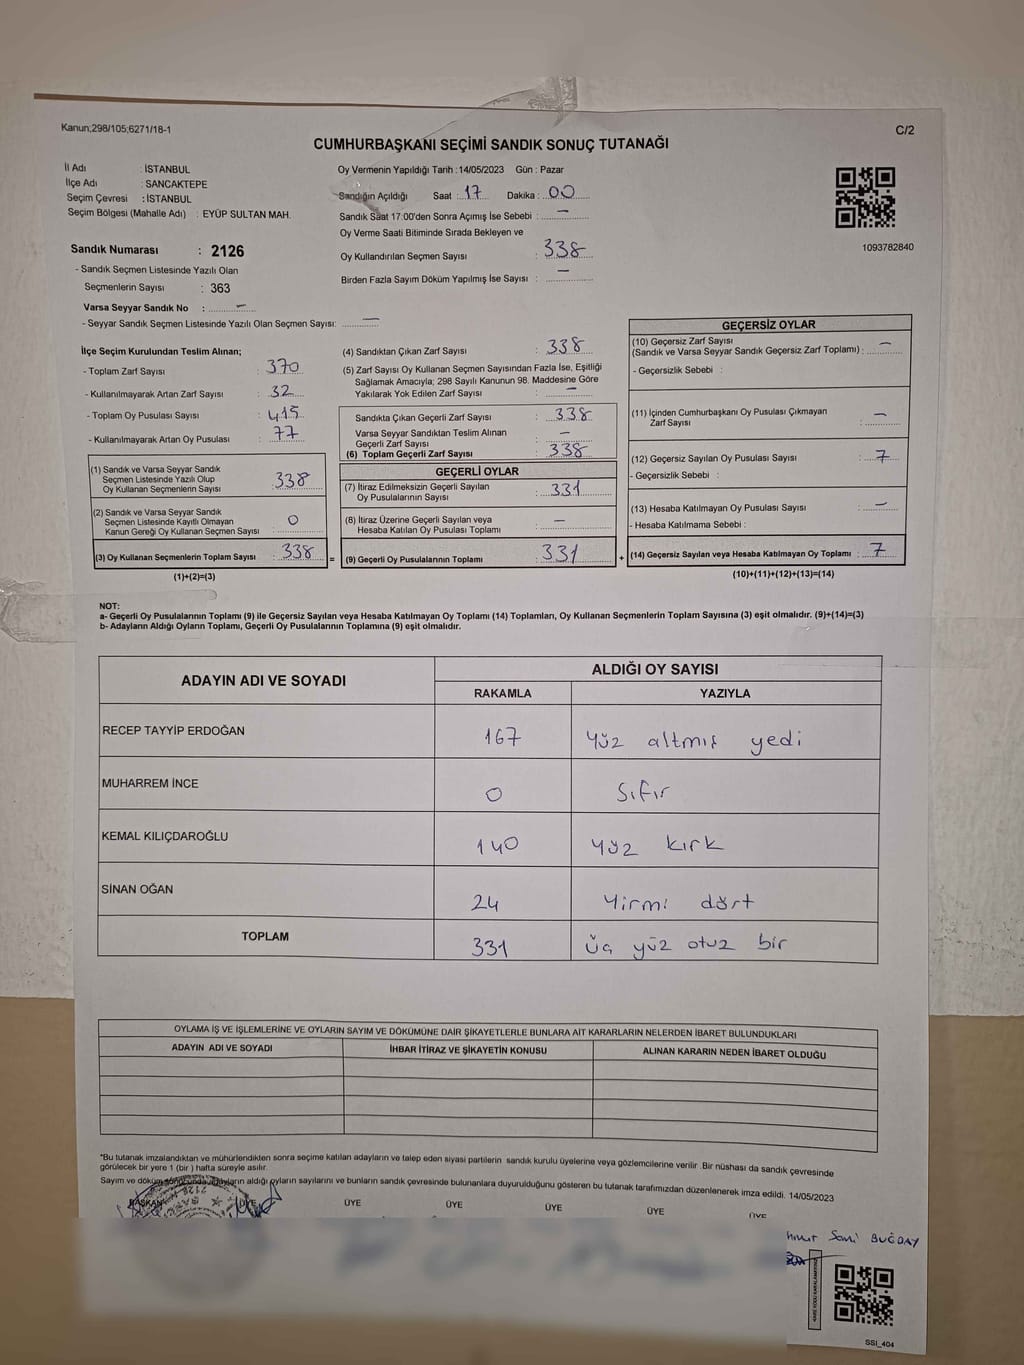 Kanun;298/105;6271/18-1
C/2
CUMHURBAŞKANI SEÇİMİ SANDIK SONUÇ TUTANAĞI
İl Adı : İSTANBUL
İlçe Adı : SANCAKTEPE
Seçim Çevresi : İSTANBUL
Seçim Bölgesi (Mahalle Adı) : EYÜP SULTAN MAH.
Sandık Numarası : 2126
- Sandık Seçmen Listesinde Yazılı Olan
Seçmenlerin Sayısı : 363
Varsa Seyyar Sandık No : –
- Seyyar Sandık Seçmen Listesinde Yazılı Olan Seçmen Sayısı: –
Oy Vermenin Yapıldığı Tarih : 14/05/2023 Gün : Pazar
Sandığın Açıldığı Saat : 17 Dakika : 00
Sandık Saat 17:00'den Sonra Açımış İse Sebebi : –
Oy Verme Saati Bitiminde Sırada Bekleyen ve
Oy Kullandırılan Seçmen Sayısı : 338
Birden Fazla Sayım Döküm Yapılmış İse Sayısı : –
1093782840
İlçe Seçim Kurulundan Teslim Alınan;
- Toplam Zarf Sayısı : 370
- Kullanılmayarak Artan Zarf Sayısı : 32
- Toplam Oy Pusulası Sayısı : 415
- Kullanılmayarak Artan Oy Pusulası : 77
(1) Sandık ve Varsa Seyyar Sandık
Seçmen Listesinde Yazılı Olup
Oy Kullanan Seçmenlerin Sayısı : 338
(2) Sandık ve Varsa Seyyar Sandık
Seçmen Listesinde Kayıtlı Olmayan
Kanun Gereği Oy Kullanan Seçmen Sayısı : 0
(3) Oy Kullanan Seçmenlerin Toplam Sayısı : 338
(1)+(2)=(3)
=
(4) Sandıktan Çıkan Zarf Sayısı : 338
(5) Zarf Sayısı Oy Kullanan Seçmen Sayısından Fazla İse, Eşitliği
Sağlamak Amacıyla; 298 Sayılı Kanunun 98. Maddesine Göre
Yakılarak Yok Edilen Zarf Sayısı : –
Sandıkta Çıkan Geçerli Zarf Sayısı : 338
Varsa Seyyar Sandıktan Teslim Alınan
Geçerli Zarf Sayısı : –
(6) Toplam Geçerli Zarf Sayısı : 338
GEÇERLİ OYLAR
(7) İtiraz Edilmeksizin Geçerli Sayılan
Oy Pusulalarının Sayısı : 331
(8) İtiraz Üzerine Geçerli Sayılan veya
Hesaba Katılan Oy Pusulası Toplamı : –
(9) Geçerli Oy Pusulalarının Toplamı : 331
+
GEÇERSİZ OYLAR
(10) Geçersiz Zarf Sayısı
(Sandık ve Varsa Seyyar Sandık Geçersiz Zarf Toplamı) : –
- Geçersizlik Sebebi :
(11) İçinden Cumhurbaşkanı Oy Pusulası Çıkmayan
Zarf Sayısı : –
(12) Geçersiz Sayılan Oy Pusulası Sayısı : 7
- Geçersizlik Sebebi :
(13) Hesaba Katılmayan Oy Pusulası Sayısı : –
- Hesaba Katılmama Sebebi :
(14) Geçersiz Sayılan veya Hesaba Katılmayan Oy Toplamı : 7
(10)+(11)+(12)+(13)=(14)
NOT:
a- Geçerli Oy Pusulalarının Toplamı (9) ile Geçersiz Sayılan veya Hesaba Katılmayan Oy Toplamı (14) Toplamları, Oy Kullanan Seçmenlerin Toplam Sayısına (3) eşit olmalıdır. (9)+(14)=(3)
b- Adayların Aldığı Oyların Toplamı, Geçerli Oy Pusulalarının Toplamına (9) eşit olmalıdır.
ADAYIN ADI VE SOYADI
ALDIĞI OY SAYISI
RAKAMLA YAZIYLA
RECEP TAYYİP ERDOĞAN 167 Yüz altmış yedi
MUHARREM İNCE 0 Sıfır
KEMAL KILIÇDAROĞLU 140 Yüz kırk
SİNAN OĞAN 24 Yirmi dört
TOPLAM 331 üç yüz otuz bir
OYLAMA İŞ VE İŞLEMLERİNE VE OYLARIN SAYIM VE DÖKÜMÜNE DAİR ŞİKAYETLERLE BUNLARA AİT KARARLARIN NELERDEN İBARET BULUNDUKLARI
ADAYIN ADI VE SOYADI İHBAR İTİRAZ VE ŞİKAYETİN KONUSU ALINAN KARARIN NEDEN İBARET OLDUĞU
*Bu tutanak imzalandıktan ve mühürlendikten sonra seçime katılan adayların ve talep eden siyasi partilerin sandık kurulu üyelerine veya gözlemcilerine verilir .Bir nüshası da sandık çevresinde
görülecek bir yere 1 (bir ) hafta süreyle asılır.
Sayım ve döküm sonucunda adayların aldığı oyların sayılarını ve bunların sandık çevresinde bulunanlara duyurulduğunu gösteren bu tutanak tarafımızdan düzenlenerek imza edildi. 14/05/2023
BAŞKAN ÜYE ÜYE ÜYE ÜYE ÜYE ÜYE
2126
Sami BUĞDAY
SSI_404